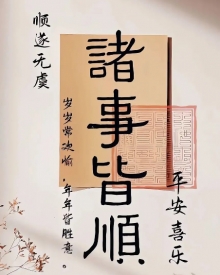 顺遂无虞
諸事皆順
岁岁常欢愉，年年皆胜意。
平安喜乐